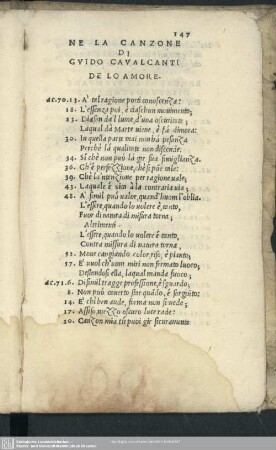 147
NE LA CANZONE
DI
GVIDO CAVALCANTI
DE LO AMORE.
Ac.70.13. A' tal ragione porti conoscenza:
18. L'essenza poi, e ciascun movimento,
23. Diasin dal lume, d'una oscuritate;
Laqual da Marte viene, e fa dimora:
30. In quella parte mai non ha pesanza
Perche da qualitate non discende:
34. Si che non puo la gir sua simiglianza.
36. Ch'è perfezzione, che si pon tale:
39. Che la intenzione per ragione vale,
43. Laquale è via à la contraria via;
48. A' simil può valor, quand'huom l'oblia.
L'essere, quando lo volere è tanto,
Fuor di natura di misura torna;
Altrimenti.
L'essere, quando lo volere è tanto,
Contra missura di natura torna;
52. Move cangiando color, riso, è pianto;
57. E' vuol ch'uom miri non fermato luoco;
Destandosi ella, laqual manda fuoco;
Ac.71.6. Di simil tragge professione, è sguardo;
8. Non può coverto star quādo, è sorgiuto:
14. E' chi ben aude, forma non si vede;
17. Assiso mezzo oscuro luce rade:
20. Canzon mia tu puoi gir securamente